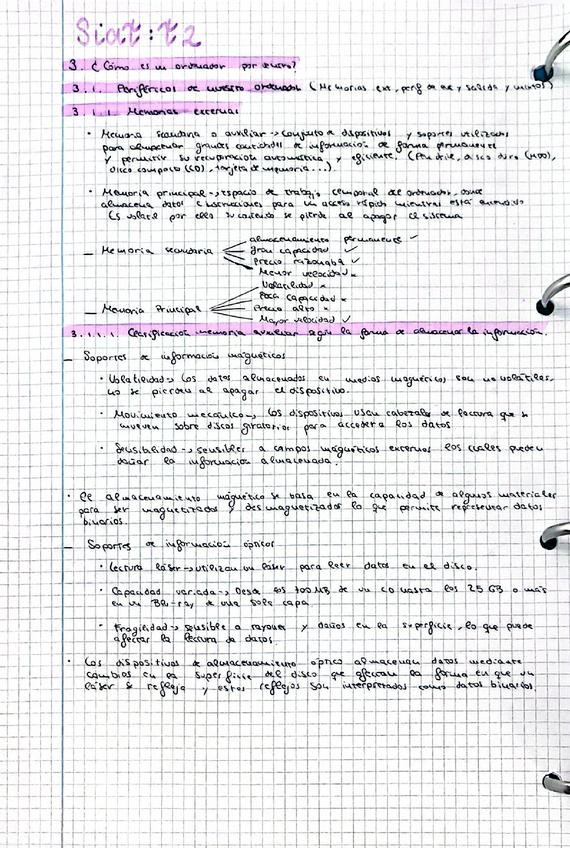 Siat: t2
3. ¿Cómo es un ordenador por dentro?
3.1. Periféricos de nuestro ordenador (Memorias ext, perif de ex y salida y mixtos)
3.1.1. Memorias externas
· Memoria secundaria o auxiliar -> conjunto de dispositivos y soportes utilizados
para almacenar grandes cantidades de información de forma permanente
y permitir su recuperación automática y eficiente. (Pen drive, disco duro (HDD),
disco compacto (CD), tarjeta de memoria...).
· Memoria principal -> espacio de trabajo temporal del ordenador, donde
almacena datos e instrucciones para un acceso rápido mientras está encendido
Es volátil por ello su contenido se pierde al apagar el sistema
- Memoria secundaria
almacenamiento permanente ✓
gran capacidad ✓
Precio razonable ✓
Menor velocidad x
- Memoria Principal
Volatilidad x
Poca capacidad x
Precio alto x
Mayor velocidad ✓
3.1.1.1. Clasificación memoria auxiliar según la forma de almacenar la información.
- Soportes de información magnéticos
· Volatilidad -> Los datos almacenados en medios magnéticos son no volátiles,
no se pierden al apagar el dispositivo.
· Movimiento mecánico -> los dispositivos usan cabezales de lectura que se
mueven sobre discos giratorios para acceder a los datos
· Sensibilidad -> sensibles a campos magnéticos externos los cuales pueden
dañar la información almacenada.
· El almacenamiento magnético se basa en la capacidad de algunos materiales
para ser magnetizados y desmagnetizados lo que permite representar datos
binarios.
- Soportes de información ópticos
· Lectura láser -> utilizan un láser para leer datos en el disco.
· Capacidad variada -> Desde los 700 MB de un CD hasta los 25 GB o más
en un Blu-ray de una sola capa
· Fragilidad -> sensible a rayones y daños en la superficie, lo que puede
afectar la lectura de datos.
· Los dispositivos de almacenamiento óptico almacenan datos mediante
cambios en la superficie del disco que afectan la forma en que un
láser se refleja y estos reflejos son interpretados como datos binarios.